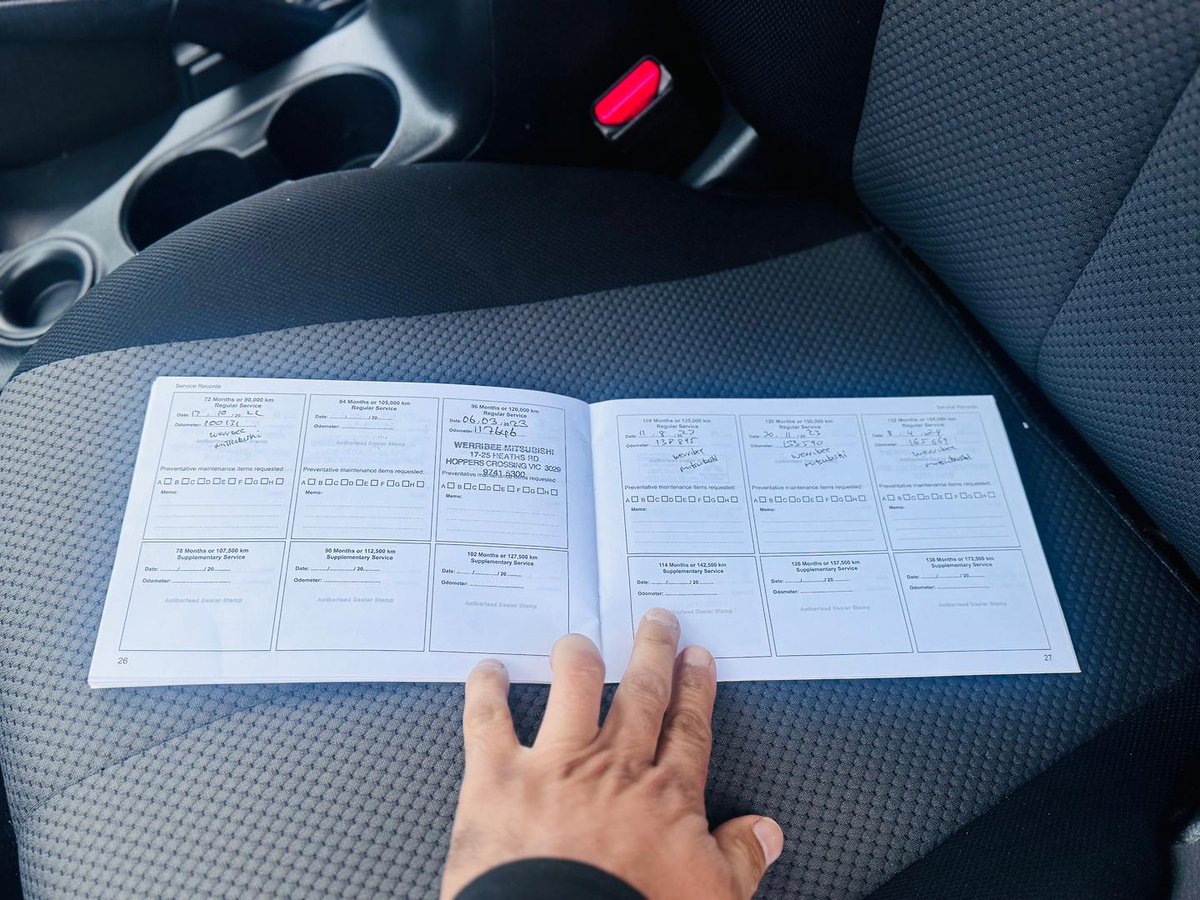 Service Records
72 Months or 90,000 km
Regular Service
Date: 17.10.2022
Odometer: 100131
werribee
mitsubishi
Preventative maintenance items requested:
A B C D E F G H
Memo:
84 Months or 105,000 km
Regular Service
Date: ....../....../ 20......
Odometer:
Authorised Dealer Stamp
Preventative maintenance items requested:
A B C D E F G H
Memo:
96 Months or 120,000 km
Regular Service
Date: 06.03.2023
Odometer: 117646
WERRIBEE MITSUBISHI
17-25 HEATHS RD
HOPPERS CROSSING VIC 3029
9741 5300
Preventative maintenance items requested:
A B C D E F G H
Memo:
78 Months or 107,500 km
Supplementary Service
Date: ....../....../ 20......
Odometer:
Authorised Dealer Stamp
90 Months or 112,500 km
Supplementary Service
Date: ....../....../ 20......
Odometer:
Authorised Dealer Stamp
102 Months or 127,500 km
Supplementary Service
Date: ....../....../ 20......
Odometer:
Authorised Dealer Stamp
26
Service Records
108 Months or 135,000 km
Regular Service
Date: 11.8.2023
Odometer: 138895
werribee
mitsubishi
Preventative maintenance items requested:
A B C D E F G H
Memo:
120 Months or 150,000 km
Regular Service
Date: 20.11.20
Odometer: 153590
werribee
mitsubishi
Preventative maintenance items requested:
A B C D E F G H
Memo:
132 Months or 165,000 km
Regular Service
Date: 8.4.24
Odometer: 165569
werribee
mitsubishi
Preventative maintenance items requested:
A B C D E F G H
Memo:
114 Months or 142,500 km
Supplementary Service
Date: ....../....../ 20......
Odometer:
Authorised Dealer Stamp
126 Months or 157,500 km
Supplementary Service
Date: ....../....../ 20......
Odometer:
Authorised Dealer Stamp
138 Months or 172,500 km
Supplementary Service
Date: ....../....../ 20......
Odometer:
Authorised Dealer Stamp
27